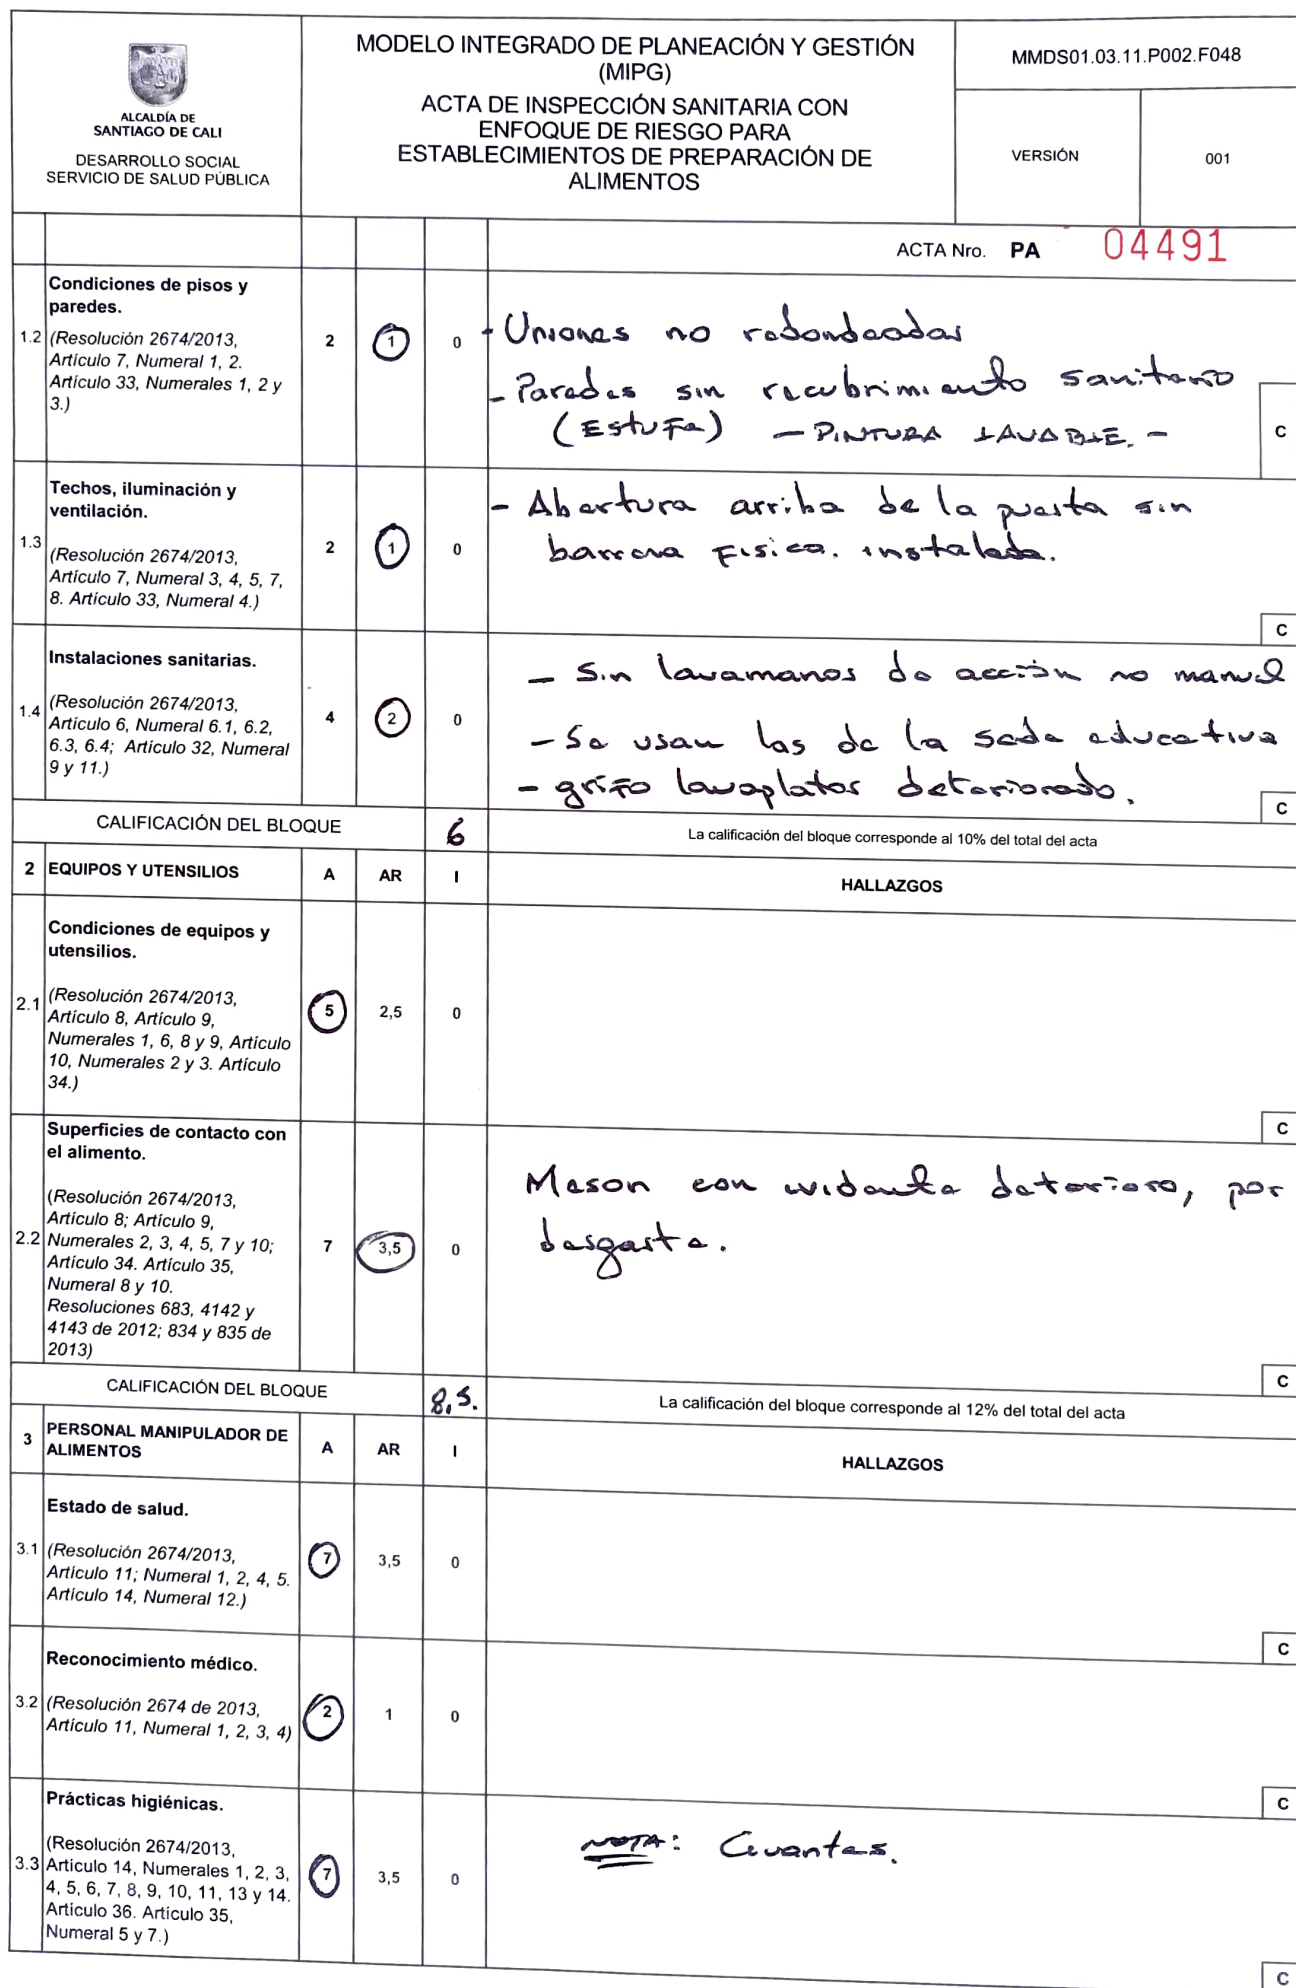 ALCALDÍA DE
SANTIAGO DE CALI
DESARROLLO SOCIAL
SERVICIO DE SALUD PÚBLICA
MODELO INTEGRADO DE PLANEACIÓN Y GESTIÓN
(MIPG)
ACTA DE INSPECCIÓN SANITARIA CON
ENFOQUE DE RIESGO PARA
ESTABLECIMIENTOS DE PREPARACIÓN DE
ALIMENTOS
MMDS01.03.11.P002.F048
VERSIÓN 001
ACTA Nro. PA 04491
1.2
Condiciones de pisos y
paredes.
(Resolución 2674/2013,
Artículo 7, Numeral 1, 2.
Artículo 33, Numerales 1, 2 y
3.)
2 1 0
- Uniones no redondeadas
- Paredes sin recubrimiento sanitario
(Estufa) - PINTURA LAVABLE. -
C
1.3
Techos, iluminación y
ventilación.
(Resolución 2674/2013,
Artículo 7, Numeral 3, 4, 5, 7,
8. Artículo 33, Numeral 4.)
2 1 0
- Abertura arriba de la puerta sin
barrera Fisica. instalada.
C
1.4
Instalaciones sanitarias.
(Resolución 2674/2013,
Artículo 6, Numeral 6.1, 6.2,
6.3, 6.4; Artículo 32, Numeral
9 y 11.)
4 2 0
- Sin lavamanos de acción no manual
- Se usan las de la sede educativa
- grifo lavaplatos deteriorado.
C
CALIFICACIÓN DEL BLOQUE 6 La calificación del bloque corresponde al 10% del total del acta
2 EQUIPOS Y UTENSILIOS A AR I HALLAZGOS
2.1
Condiciones de equipos y
utensilios.
(Resolución 2674/2013,
Artículo 8, Artículo 9,
Numerales 1, 6, 8 y 9, Artículo
10, Numerales 2 y 3. Artículo
34.)
5 2,5 0
C
2.2
Superficies de contacto con
el alimento.
(Resolución 2674/2013,
Artículo 8; Artículo 9,
Numerales 2, 3, 4, 5, 7 y 10;
Artículo 34. Artículo 35,
Numeral 8 y 10.
Resoluciones 683, 4142 y
4143 de 2012; 834 y 835 de
2013)
7 3,5 0
Meson con evidente deterioro, por
desgaste.
C
CALIFICACIÓN DEL BLOQUE 8,5. La calificación del bloque corresponde al 12% del total del acta
3 PERSONAL MANIPULADOR DE
ALIMENTOS
A AR I HALLAZGOS
3.1
Estado de salud.
(Resolución 2674/2013,
Artículo 11; Numeral 1, 2, 4, 5.
Artículo 14, Numeral 12.)
7 3,5 0
C
3.2
Reconocimiento médico.
(Resolución 2674 de 2013,
Artículo 11, Numeral 1, 2, 3, 4)
2 1 0
C
3.3
Prácticas higiénicas.
(Resolución 2674/2013,
Artículo 14, Numerales 1, 2, 3,
4, 5, 6, 7, 8, 9, 10, 11, 13 y 14.
Artículo 36. Artículo 35,
Numeral 5 y 7.)
7 3,5 0
NOTA: Guantes.
C